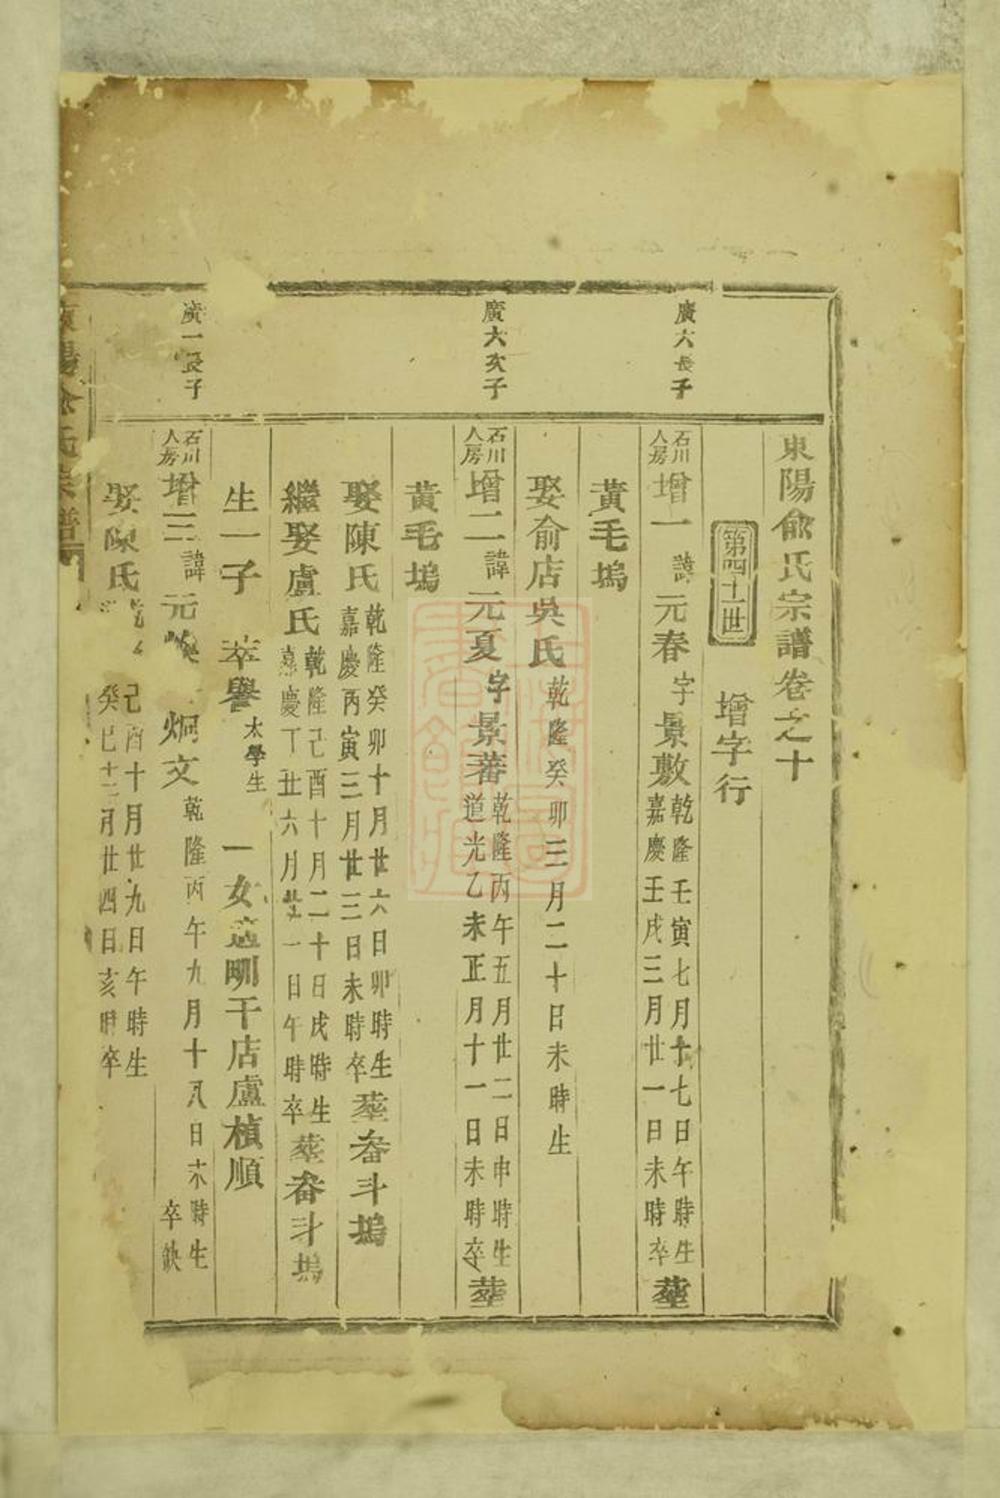 東陽俞氏宗譜卷之十
第四十一世
增字行
廣六長子
石川人房
增一諱元春字景敷
乾隆壬寅七月十七日午時生
嘉慶壬戌三月廿一日未時卒
葬
黃毛塢
娶俞店吳氏
乾隆癸卯三月二十日未時生
廣六次子
石川人房
增二諱元夏字景蕃
乾隆丙午五月廿二日申時生
道光乙未正月十一日未時卒
葬
黃毛塢
娶陳氏
乾隆癸卯十月廿六日卯時生
嘉慶丙寅三月廿三日未時卒
葬畚斗塢
繼娶盧氏
乾隆己酉十月二十日戌時生
嘉慶丁丑六月廿一日午時卒
葬畚斗塢
生一子
萃譽
太學生
一女適 干店盧楨順
廣一長子
石川人房
增三諱元 炯文
乾隆丙午九月十八日未時生
卒缺
娶陳氏
己酉十月廿九日午時生
癸巳十二月廿四日亥時卒
東陽俞氏宗譜